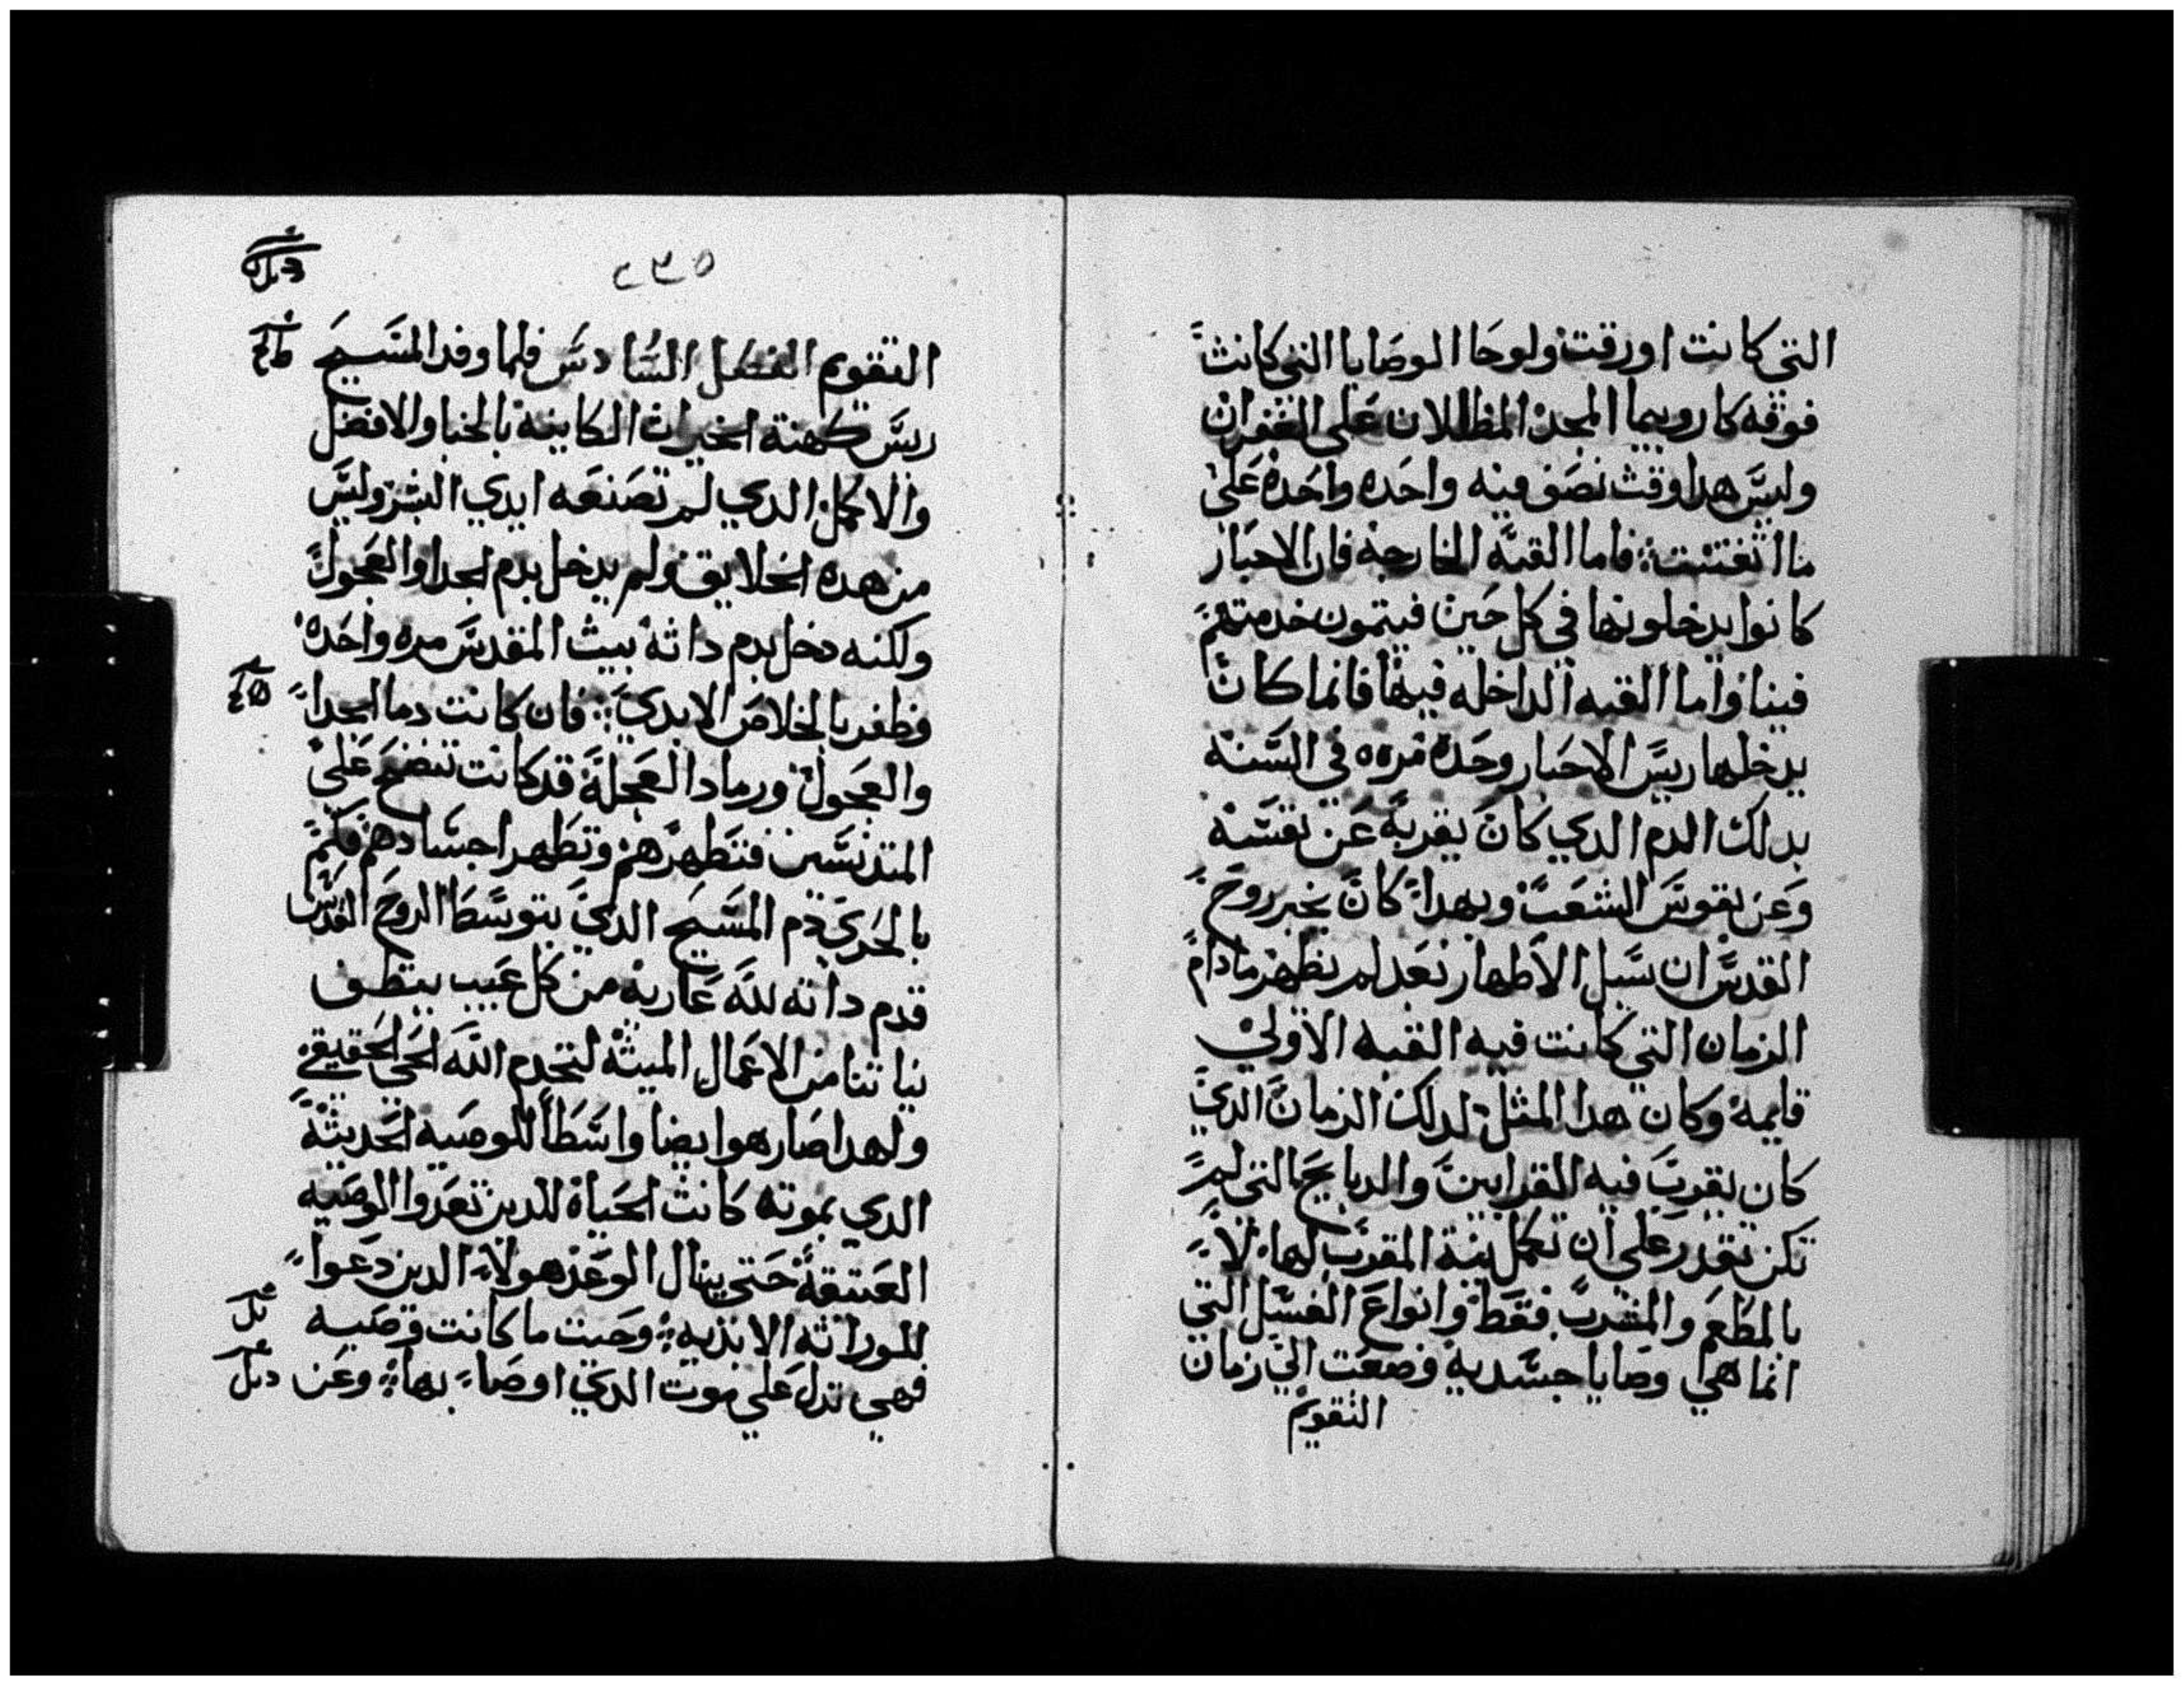 التي كانت اورقت ولوحا الوصايا التي كانت
فوقه كاروبيما المجد المظللان علي الغفران
وليس هدا وقت نصف فيه واحده واحده علي
ما اتفتنت فاما القبه الخارجه فان الاحبار
كانوا يدخلونها في كل حين فيتمون خدمتهم
فيها واما القبه الداخله فيها فانما كان
يدخلها ريس الاحبار وحده مره في السنه
بدلك الدم الدي كان يقربه عن نفسه
وعن نفوس الشعب وبهدا كان يخبر روح
القدس ان سبل الاطهار بعد لم تظهر مادام
الزمان التي كانت فيه القبه الاولي
قايمه وكان هدا المثل لدلك الزمان الدي
كان يقرب فيه القرابين والدبايح التي لم
تكن تقدر علي ان تكمل نية المقرب لها الا
بالمطعم والمشرب فقط وانواع الغسل التي
انما هي وصايا جسديه وضعت الي زمان
التقويم
٢٣٥
التقويم الفصل السادس فلما وفد المسيح
ريس كهنة الخيرات الكاينه بالخبا والافضل
والاكمل الدي لم تصنعه ايدي البشر وليس
من هده الخلايق ولم يدخل بدم الجدا والعجول
ولكنه دخل بدم داته بيت المقدس مره واحده
وظفر بالخلاص الابدي فان كانت دما الجدا
والعجول ورماد العجلة قد كانت تنضح علي
المتدنسين فتطهرهم وتطهر اجسادهم فكم
بالحري دم المسيح الدي بتوسط الروح القدس
قدم داته لله عاريه من كل عيب ينظف
نياتنا من الاعمال الميته لتخدم الله الحي الحقيقي
ولهدا صار هو ايضا واسطا للوصيه الحديثة
الدي بموته كانت الحياة للدين تعدوا الوصيه
العتيقة حتي ينال الوعد هولاء الدين دعوا
للوراثه الابديه وحيت ما كانت وصيه
فهي تدل علي موت الدي اوصاء بها وعن